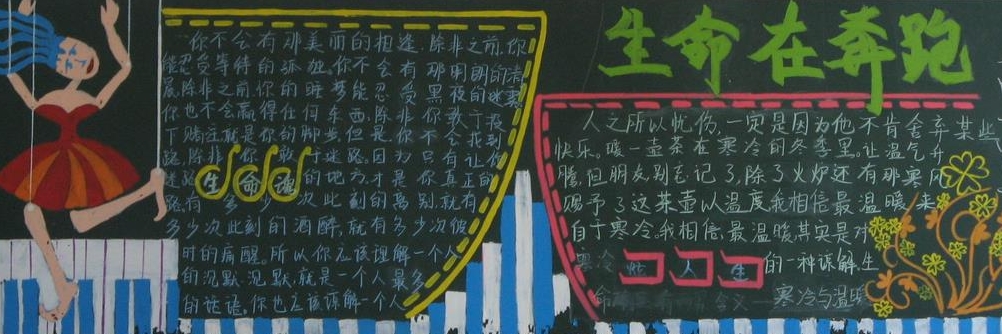 生命在奔跑
你不会有那美丽的相逢.除非之前,你
能忍受等待的孤独.你不会有那明朗的清
晨.除非之前.你的睡梦能忍受黑夜的迷雾.
你也不会赢得任何东西.除非你敢于投
下赌注就是你的脚步.但是.你不会找到
路.除非你敢于迷路.因为只有让你
迷路的地方.才是你真正的
路.有多少次此刻的离别.就有
多少次此刻的酒醉.就有多少次彼
时的病醒.所以你应该理解一个人
的沉默.沉默.就是一个人最多
的话语.你也应该谅解一个人
生命谱
人之所以忧伤,一定是因为他不肯舍弃某些
快乐。暖一壶茶在寒冷的冬季里。让温气升
腾.但朋友别忘记了,除了火炉还有那寒风
赐予了这茶壶以温度.我相信最温暖来
自于寒冷.我相信.最温暖其实是对
寒冷的一种谅解.生
人生
命
寒冷与温暖